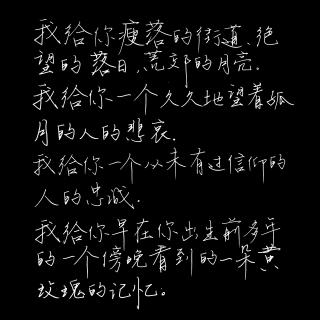 我给你瘦落的街道、绝
望的落日,荒郊的月亮.
我给你一个久久地望着孤
月的人的悲哀.
我给你一个从未有过信仰的
人的忠诚.
我给你早在你出生前多年
的一个傍晚看到的一朵黄
玫瑰的记忆。